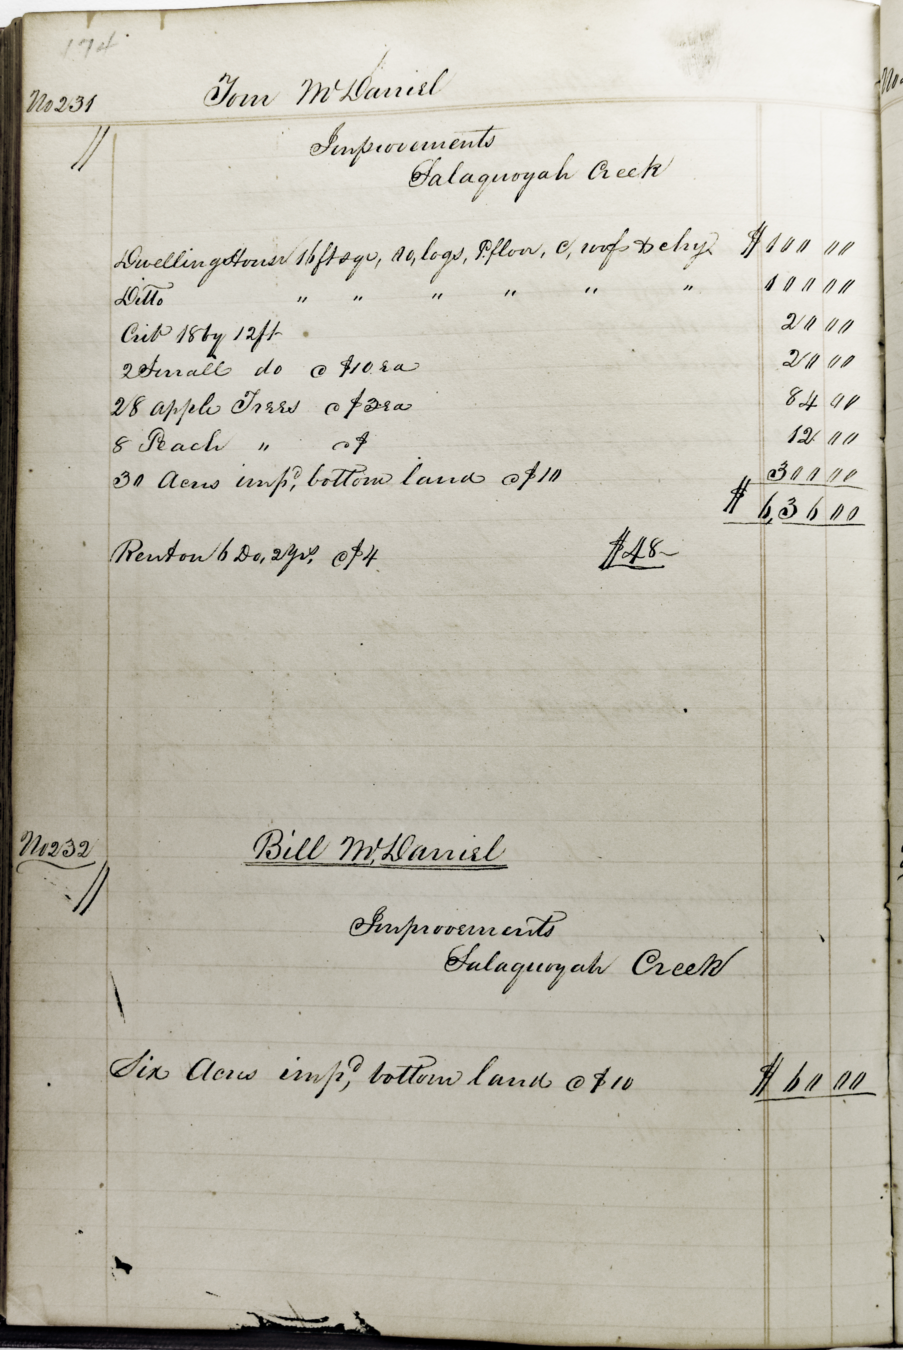 174
No 231 Tom McDaniel
Improvements
Salaquoyah Creek
Dwelling House 16 ft sqr, ro, logs, P. floor, C, roof & chy. $ 100 00
Ditto " " " " " " 100 00
Crib 18 by 12 ft 20 00
2 Small do @ $10 ea 20 00
28 apple Trees @ $3 ea 84 00
8 Peach " @ $ 12 00
30 Acres impd, bottom land @ $10 300 00
$ 636 00
Rent on 6 Do, 2 yrs, @ $4 $48–
No 232 Bill McDaniel
Improvements
Salaquoyah Creek
Six Acres impd, bottom land @ $10 $ 60 00